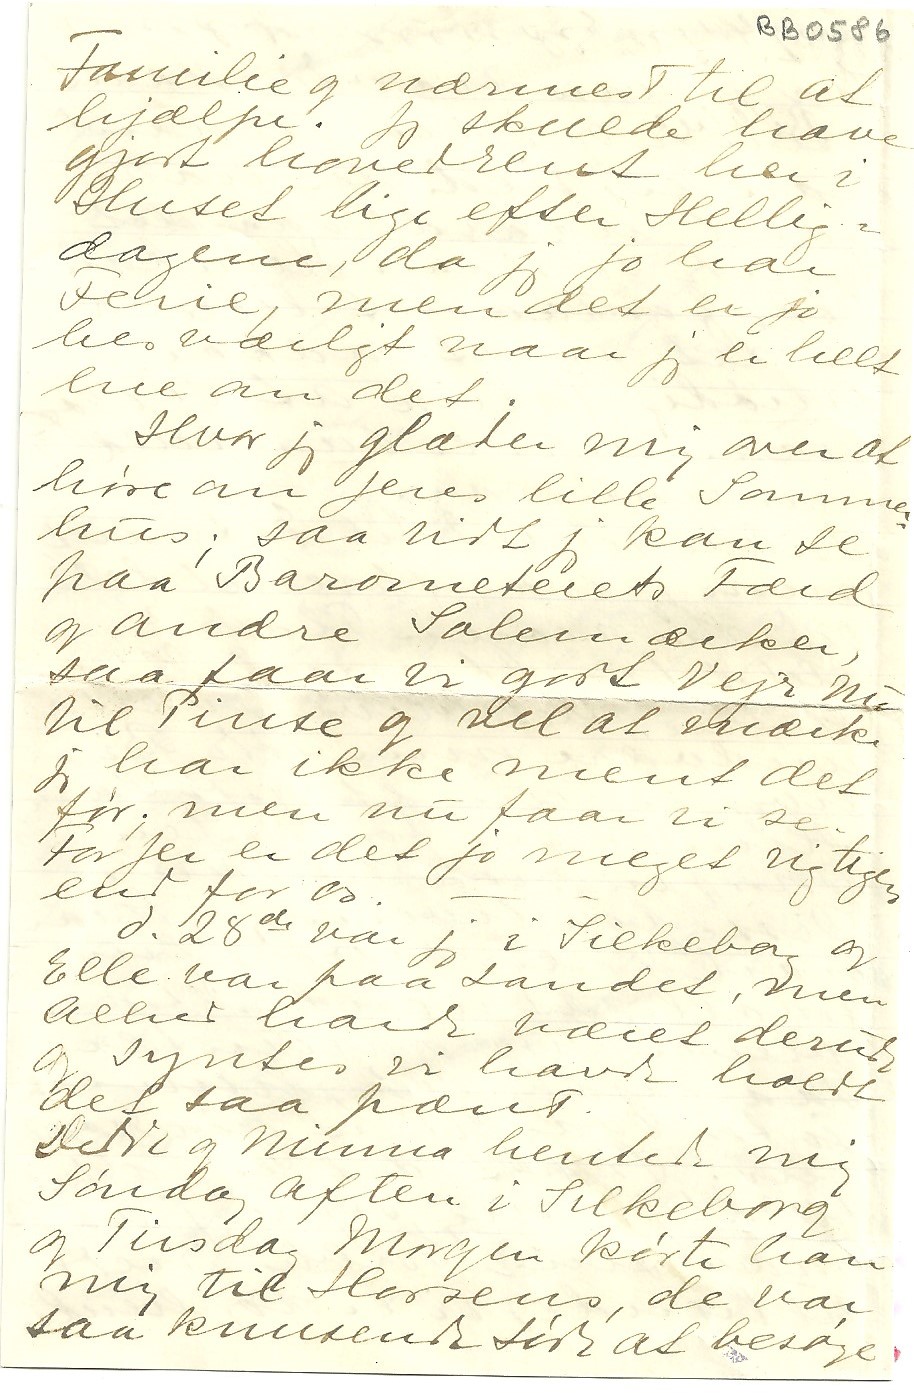 BB0586
Familie og nærmest til at
hjælpe. Jeg skulde have
gjort hovedrent her i
Huset lige efter Hellig-
dagene, da jeg jo har
Ferie, men det er jo
besværligt naar jeg er helt
ene om det.
Hvor jeg glæder mig over at
høre om Jeres lille Sommer-
hus; saa vidt jeg kan se
paa Barometerets Færd
og andre Solemærker,
saa faar vi godt Vejr nu
til Pinse og vel at mærke
jeg har ikke ment det
før; men nu faar vi se.
For Jer er det jo meget vigtigere
end for os. —
d. 28de var jeg i Silkeborg og
Elle var paa Landet, men
Alhed havde været derude
og syntes vi havde holdt
det saa pænt.
Dede og Minna hentede mig
Søndag Aften i Silkeborg
og Tirsdag Morgen kørte han
mig til Horsens, de var
saa knusende søde at besøge